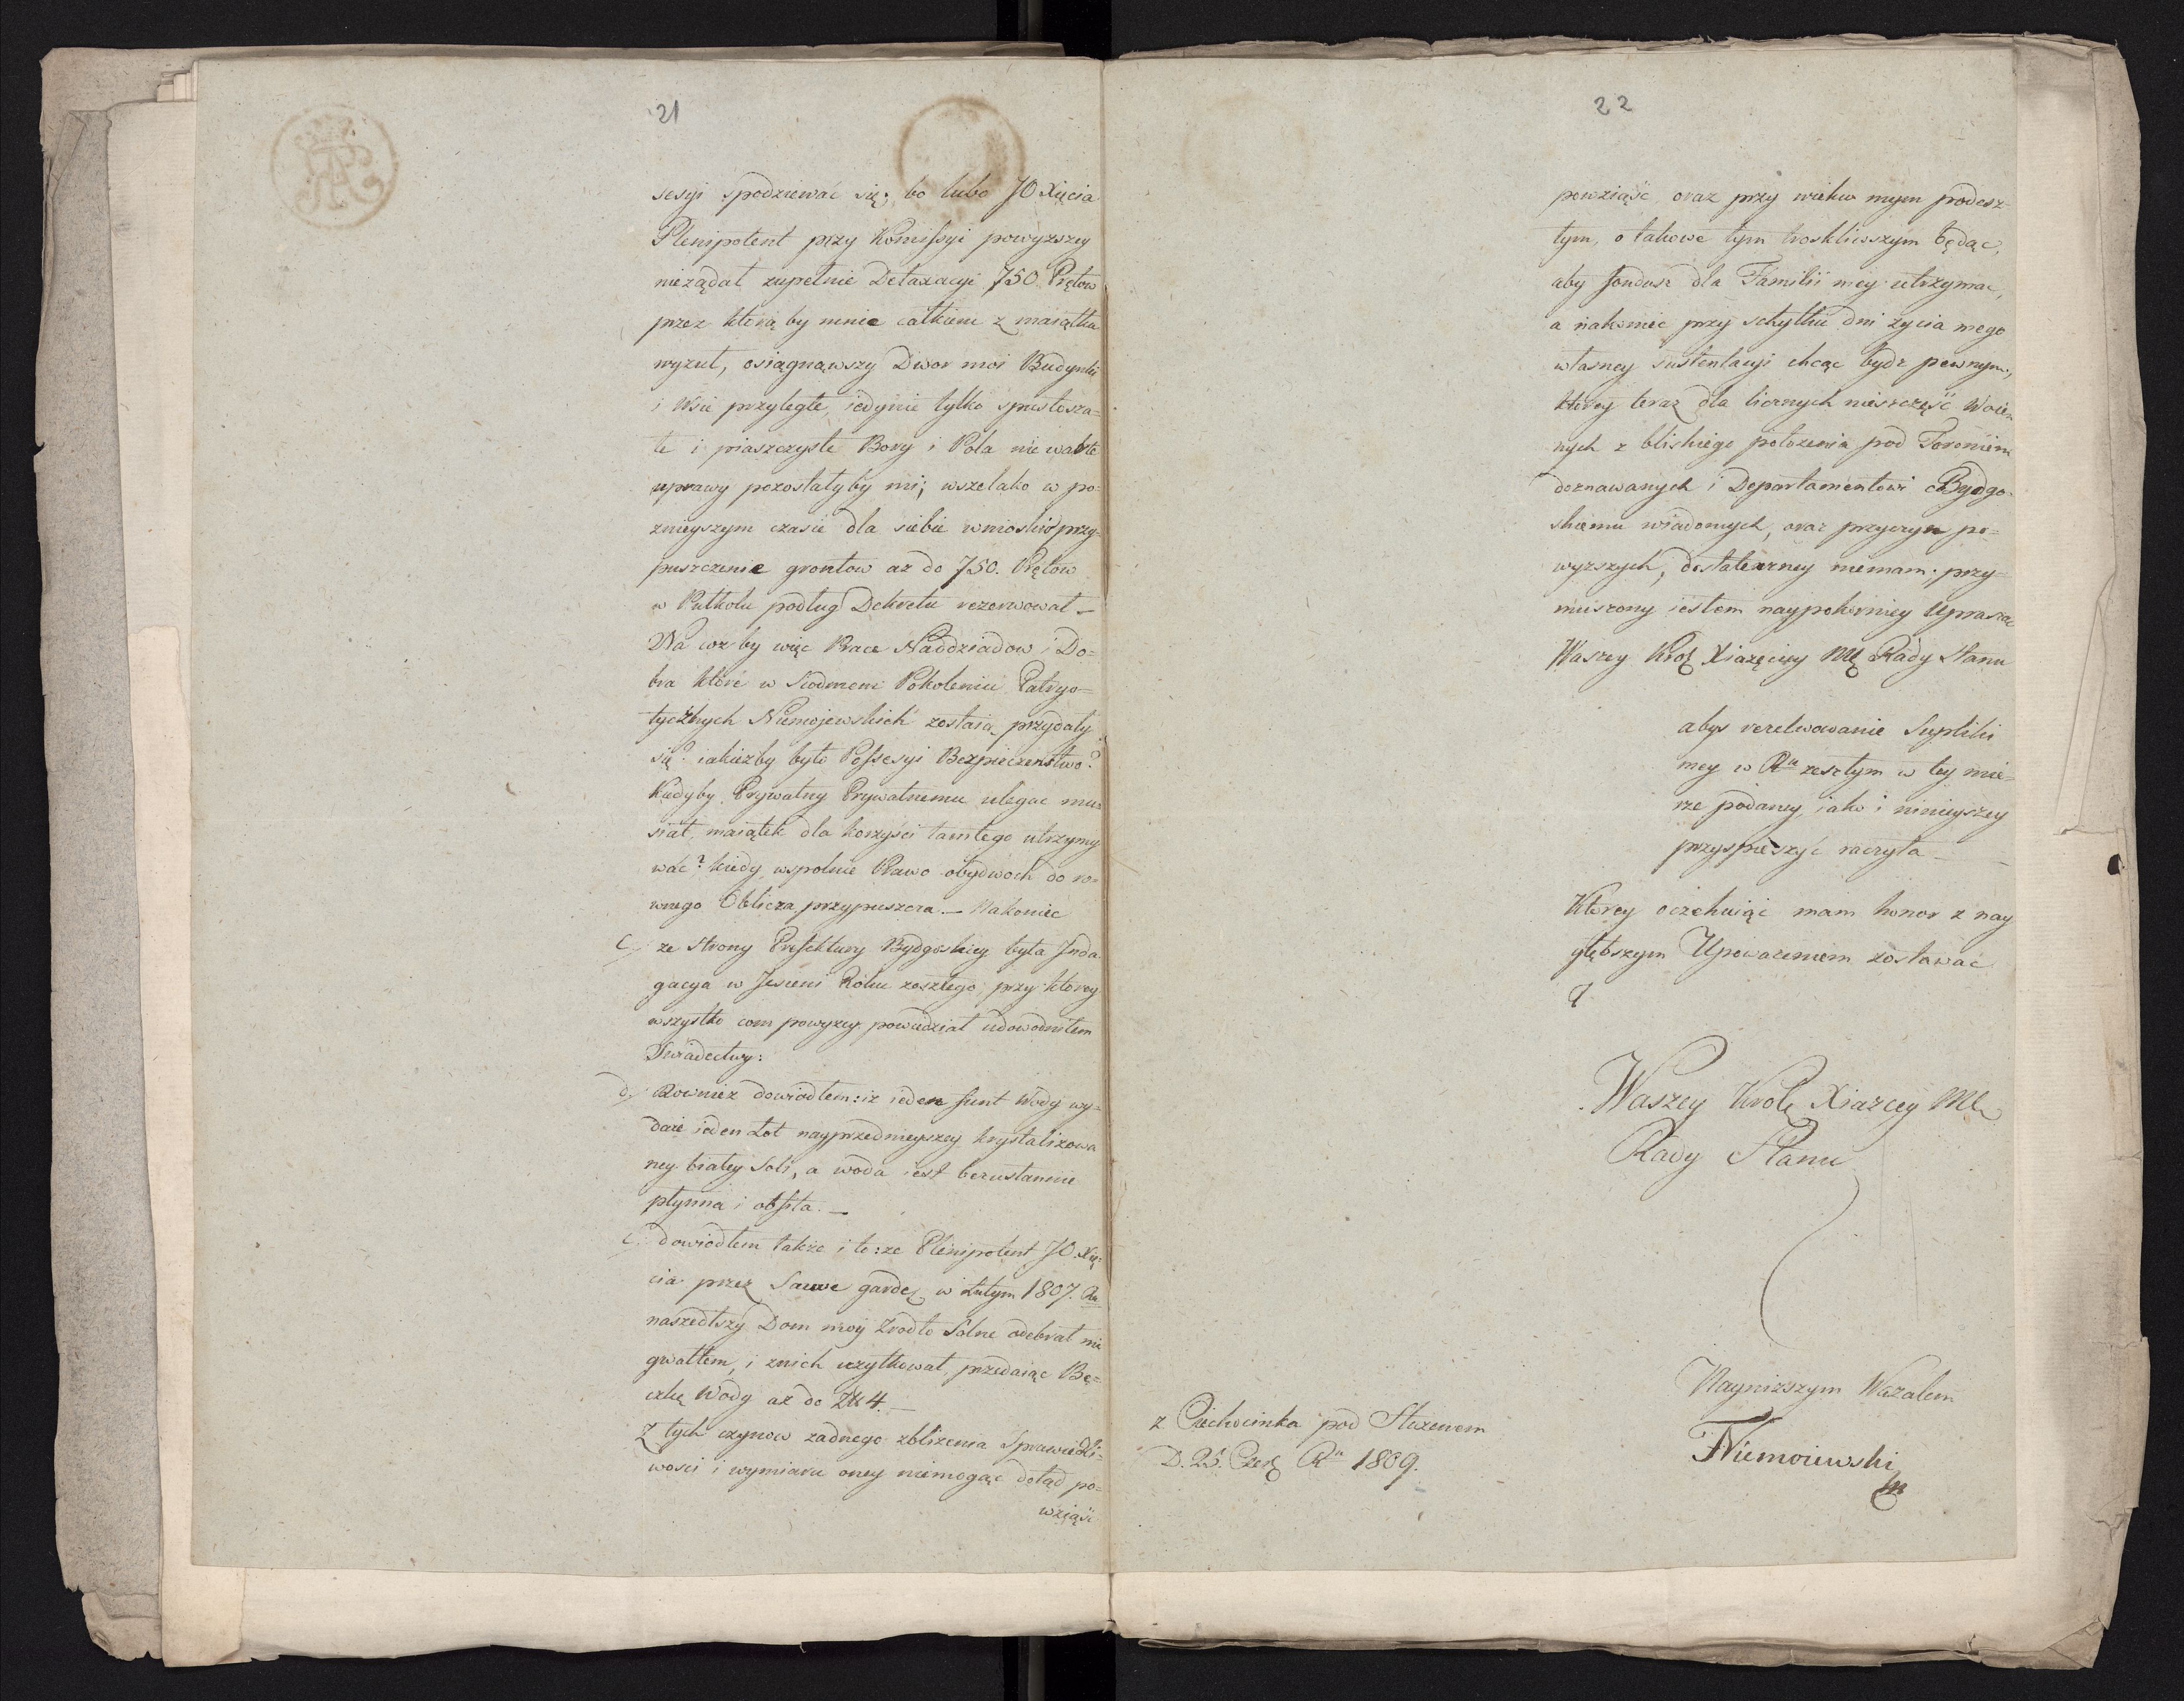 21
sesyi spodziewać się; bo lubo JO Xięcia
Plenipotent przy Komissyi powyzszey
nieżądał zupełnie Detaxacyi 750 Prętow
przez ktorą by mnie całkiem z maiątku
wyzuł, osiągnąwszy Dwor moi Budynki
i Wsie przyległe, iedynie tylko spustosza=
łe i piaszczyste Bory i Pola nie warte
uprawy pozostałyby mi; wszelako w po=
znieyszym czasie dla siebie wniosku przy=
puszczenie grontow az do 750. Prętow
w Pułkolu podług Dekretu rezerwował —
Na coz by więc Prace Naddziadow i Do=
bra które w Siodmem Pokoleniu Patryo=
tycznych Niemojewskich zostaią przydały
się? iakiezby było Possesyi Bezpieczenstwo?
Kiedyby Prywatny Prywatnemu ulegac mu=
siał, maiątek dla korzyści tamtego utrzymy
wać? kiedy wspolnie Prawo obydwoch do ro=
wnego Oblicza przypuszcza. — Nakoniec
c, ze strony Prefektury Bydgoskiey była Jnda
gacya w Jesieni Roku zeszłego, przy ktorey
wszystko com powyzey powiedział udowodniłem
Swiadectwy:
d, Rowniez dowiodłem: iz ieden funt Wody wy=
daie ieden Łot nayprzednieyszey krystalizowa
ney białey Soli, a woda iest bezustannie
płynna i obfita. —
e, dowiodłem także i to: ze Plenipotent JO. Xię=
cia przez Sauve gardę w Lutym 1807. Ru
naszedłszy Dom moy Zrodło Solne odebrał mi
gwałtem, i znich uzytkował, przedaiąc Be=
czkę Wody az do Zł 4. —
Z tych czynow zadnego zblizenia Sprawiedli=
wosci i wymiaru oney niemogąc dotąd po=
wziąść
22
powziąść, oraz przy wieku mym podesz=
łym, o takowe tym troskliwszym będąc,
aby fundusz dla Familii mey utrzymac,
a nakoniec przy schyłku dni zycia mego
własney sustentacyi chcąc bydz pewnym,
ktorey teraz dla licznych nieszczęść Woien
nych z bliskiego położenia pod Toroniem
doznawanych i Departamentowi Bydgo=
skiemu wiadomych, oraz przyczyn po=
wyzszych, dostateczney niemam; przy=
muszony iestem naypokorniey Upraszac
Waszey Krol Xiazęcey Mę Rady Stanu
abyś rezelwowanie Supliki
mey w Ru zeszłym w tey mie=
rze podaney iako i ninieyszey
przyspieszyć raczyła —
Ktorey oczekuiąc mam honor z nay
głębszym Uposzaceniem zostawać
Waszey Krole Xiazcey Mci
Rady Stanu
Naynizszym Wazalem
FNiemoiewski
mp
z Ciechocinka pod Słuzewem
D. 25. Czer Ru 1809.